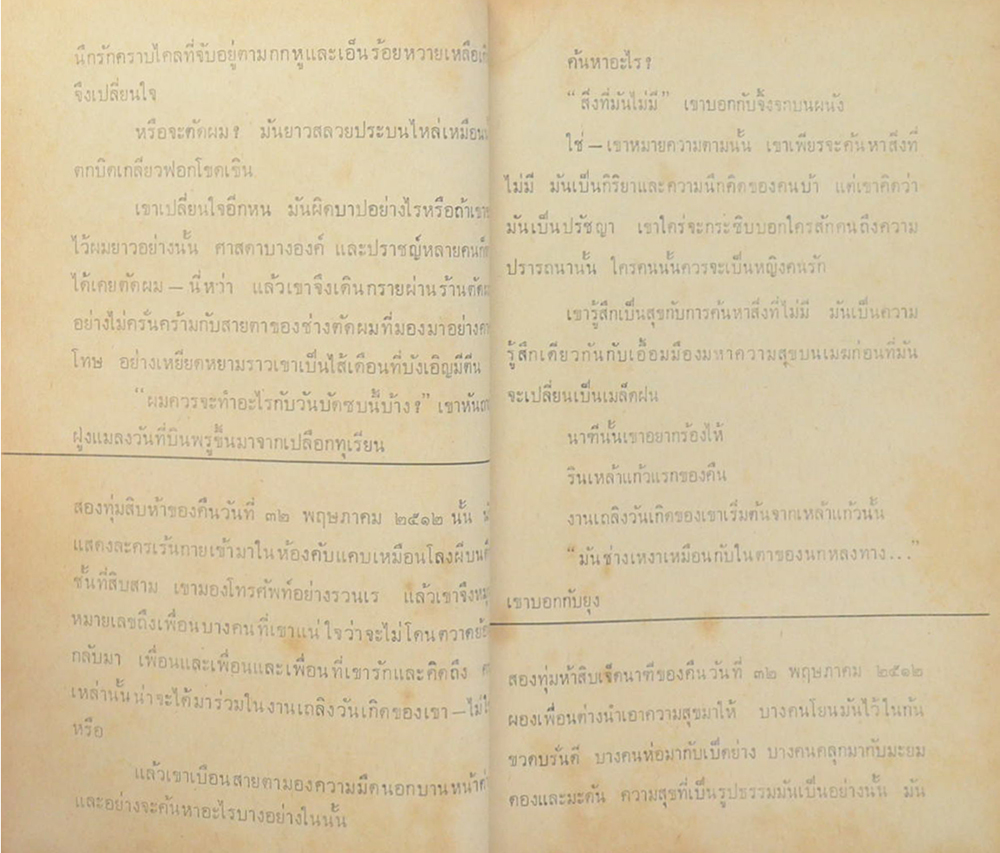 นึกรักคราบไคลที่จับอยู่ตามกกหูและเอ็นร้อยหวายเหลือเกิ
จึงเปลี่ยนใจ
หรือจะตัดผม? มันยาวสลวยประบนไหล่เหมือน
ตกบิดเกลียวฟอกโชดเชิน
เขาเปลี่ยนใจอีกหน มันผิดบาปอย่างไรหรือถ้าเขา
ไว้ผมยาวอย่างนั้น ศาสดาบางองค์ และปราชญ์หลายคนก็
ได้เคยตัดผม — นี่หว่า แล้วเขาจึงเดินกรายผ่านร้านตัดผ
อย่างไม่ครั่นคร้ามกับสายตาของช่างตัดผมที่มองมาอย่าง
โทษ อย่างเหยียดหยามราวเขาเป็นไส้เดือนที่บังเอิญมีตีน
“ผมควรจะทำอะไรกับวันบัดซบนี้บ้าง?” เขาหัน
ฝูงแมลงวันที่บินพรูขึ้นมาจากเปลือกทุเรียน
สองทุ่มสิบห้าของคืนวันที่ ๓๒ พฤษภาคม ๒๕๑๒ นั้น
แสดงละครเร้นกายเข้ามาในห้องคับแคบเหมือนโลงผีบน
ชั้นที่สิบสาม เขามองโทรศัพท์อย่างรวนเร แล้วเขาจึงหมุ
หมายเลขถึงเพื่อนบางคนที่เขาแน่ใจว่าจะไม่โดนตวาด
กลับมา เพื่อนและเพื่อนและเพื่อนที่เขารักและคิดถึง
เหล่านั้นน่าจะได้มาร่วมในงานเถลิงวันเกิดของเขา — ไม่
หรือ
แล้วเขาเบือนสายตามองความมืดนอกบานหน้าต่
และอย่างจะค้นหาอะไรบางอย่างในนั้น
ค้นหาอะไร?
“สิ่งที่มันไม่มี” เขาบอกกับจิ้งจกบนผนัง
ใช่ — เขาหมายความตามนั้น เขาเพียรจะค้นหาสิ่งที่
ไม่มี มันเป็นกิริยาและความนึกคิดของคนบ้า แต่เขาคิดว่า
มันเป็นปรัชญา เขาใคร่จะกระซิบบอกใครสักคนถึงความ
ปรารถนานั้น ใครคนนั้นควรจะเป็นหญิงคนรัก
เขารู้สึกเป็นสุขกับการค้นหาสิ่งที่ไม่มี มันเป็นความ
รู้สึกเดียวกันกับเอื้อมมือมหาความสุขบนเมฆก่อนที่มัน
จะเปลี่ยนเป็นเมล็ดฝน
นาฑีนั้นเขาอยากร้องไห้
รินเหล้าแก้วแรกของคืน
งานเถลิงวันเกิดของเขาเริ่มต้นจากเหล้าแก้วนั้น
“มันช่างเหงาเหมือนกับในตาของนกหลงทาง...”
เขาบอกกับยุง
สองทุ่มห้าสิบเจ็ดนาฑีของคืนวันที่ ๓๒ พฤษภาคม ๒๕๑๒
ผองเพื่อนต่างนำเอาความสุขมาให้ บางคนโยนมันไว้ในก้น
ขวดบรั่นดี บางคนห่อมากับเป็ดย่าง บางคนคลุกมากับมะยม
ดองและมะดัน ความสุขที่เป็นรูปธรรมมันเป็นอย่างนั้น มัน